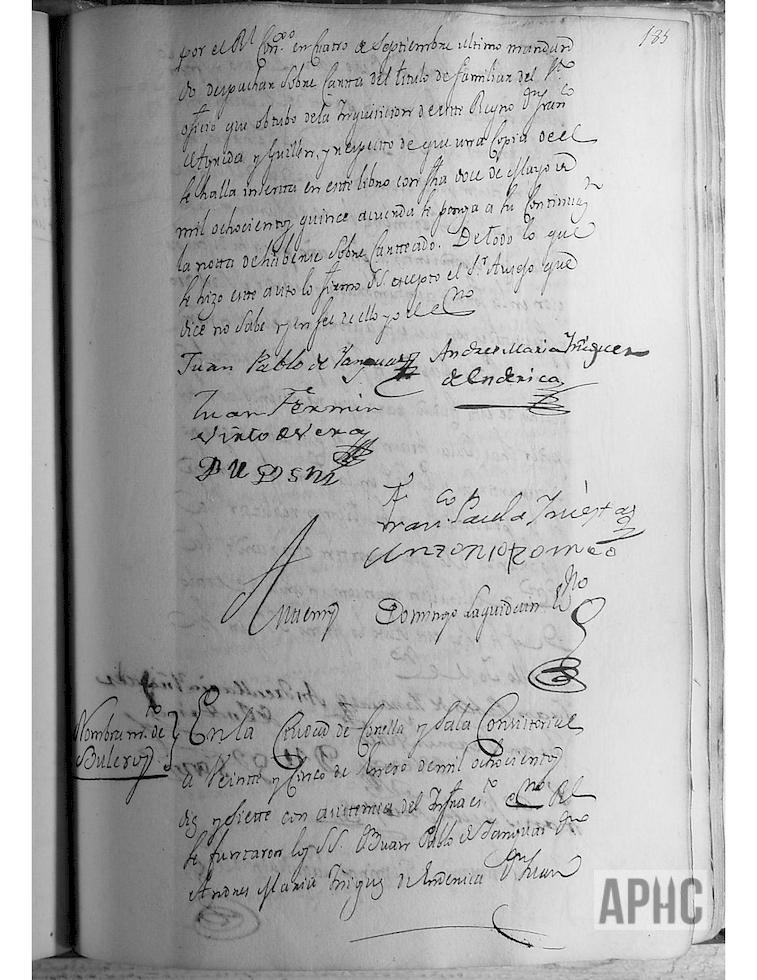 185
por el Rl. Conso. en Cuatro de Septiembre ultimo mandan
do despachar Sobre Cartta del titulo de familiar del Sto.
oficio que obtubo de la Inquisicion de este Reyno Dn. Franco.
y Guillen, y respecto de que una Copia de el
se halla inserta en este libro con fha doce de Mayo de
mil ochocientos quince acuerda se ponga a su Continuon.
la notta de haberse Sobre Carttado. De todo lo que
se hizo este auto lo firmo SS. excepto el Sr. que
dice no Sabe y en fee de ello yo el Esno.
Juan Pablo de Yanguas Andres Maria Iñiguez
de Enderica
Juan Fermin
Virto de Vera
Franco. Paula Iñestas
Antonio Romeo
Antemi Domingo Laquidain Esno.
Nombramto. de
Buleros
En la Ciudad de Corella y Sala Consistorial
a Veintte y Cinco de Enero de mil ochocientos
diez y Siette con asistencia del Infraescto. Esno. Rl.
se juntaron los SS. Dn. Juan Pablo de Yanguas Dn.
Andres Maria Iñiguez de Enderica Dn. Juan
APHC